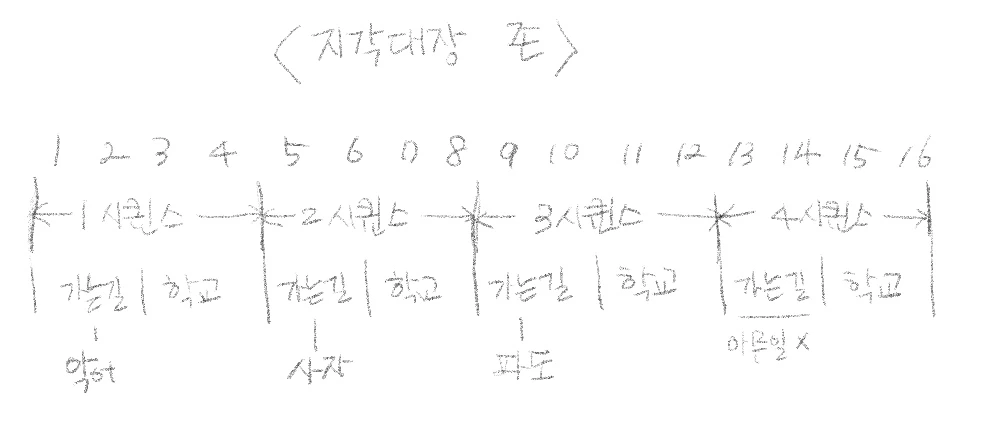 <지각대장 존>
1 2 3 4 5 6 7 8 9 10 11 12 13 14 15 16
1 시퀀스 2 시퀀스 3 시퀀스 4 시퀀스
가는길 학교 가는길 학교 가는길 학교 가는길 학교
악어 사자 파도 아무일 X